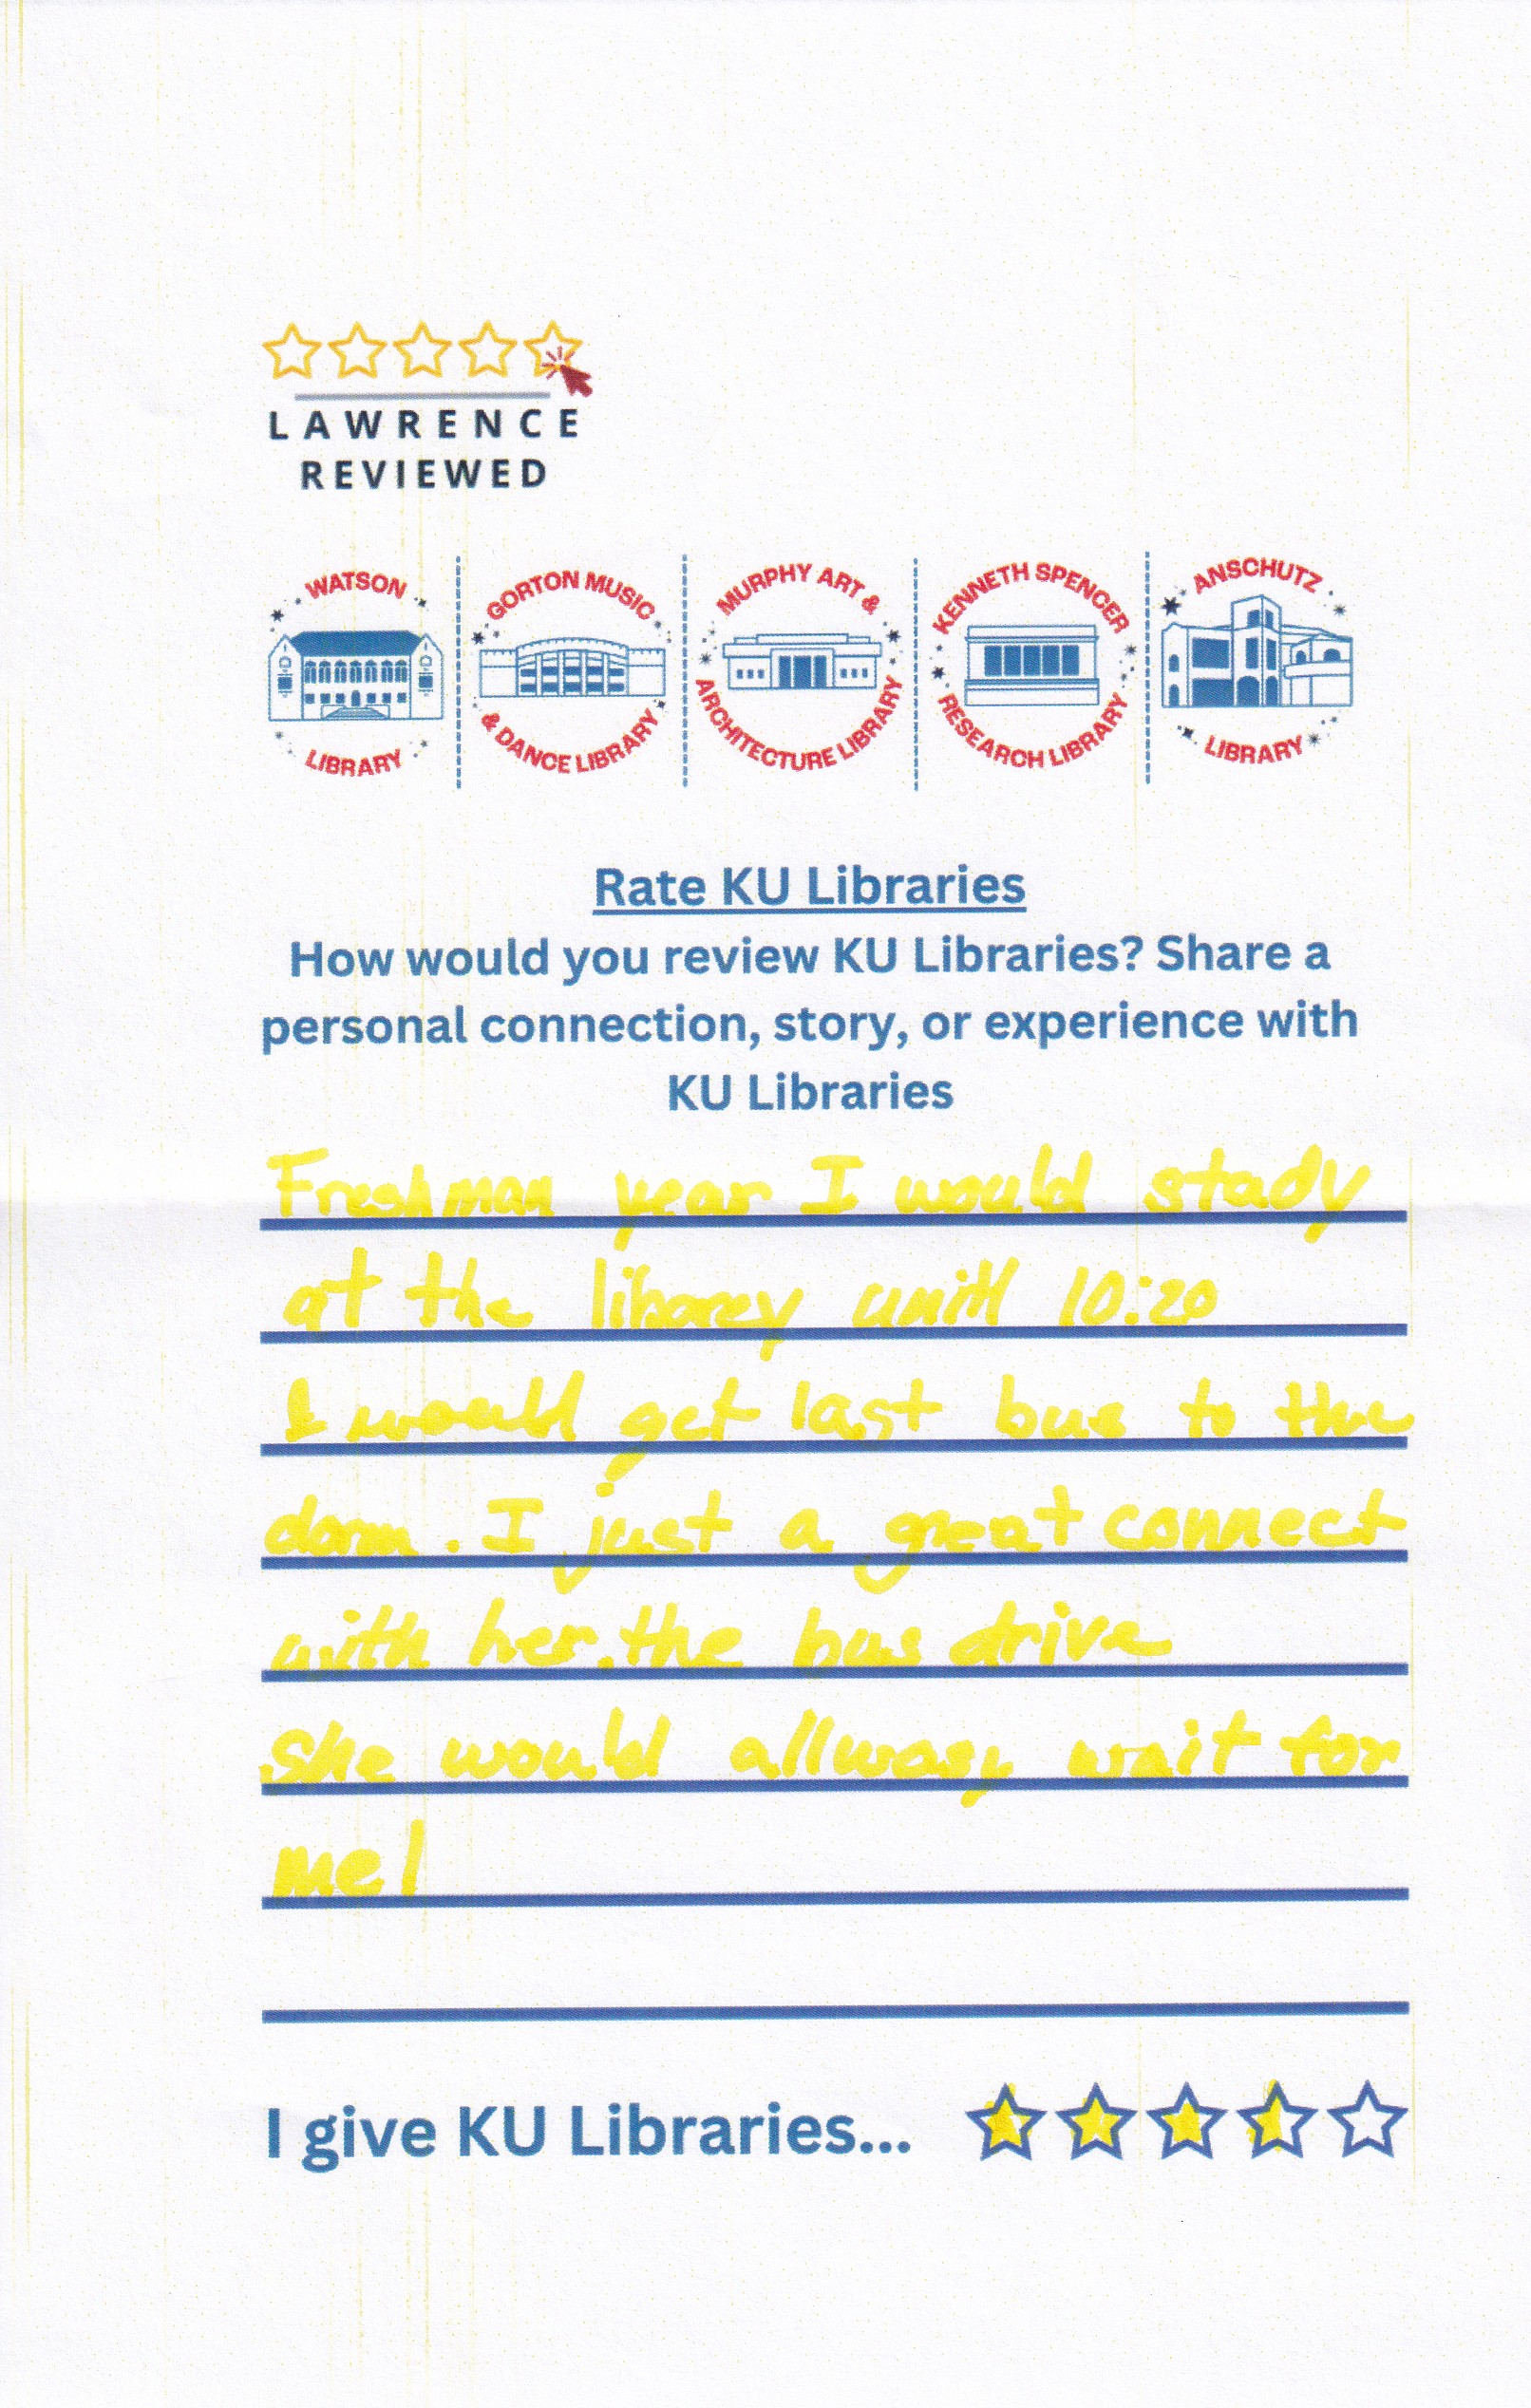 LAWRENCE
REVIEWED
WATSON
LIBRARY
GORTON MUSIC
& DANCE LIBRARY
MURPHY ART &
ARCHITECTURE LIBRARY
KENNETH SPENCER
RESEARCH LIBRARY
ANSCHUTZ
LIBRARY
Rate KU Libraries
How would you review KU Libraries? Share a
personal connection, story, or experience with
KU Libraries
Freshman year I would stady
at the library unitl 10:20
I would get last bus to the
dorm. I just a great connect
with her. the bus drive
she would allwasy wait for
me!
I give KU Libraries...